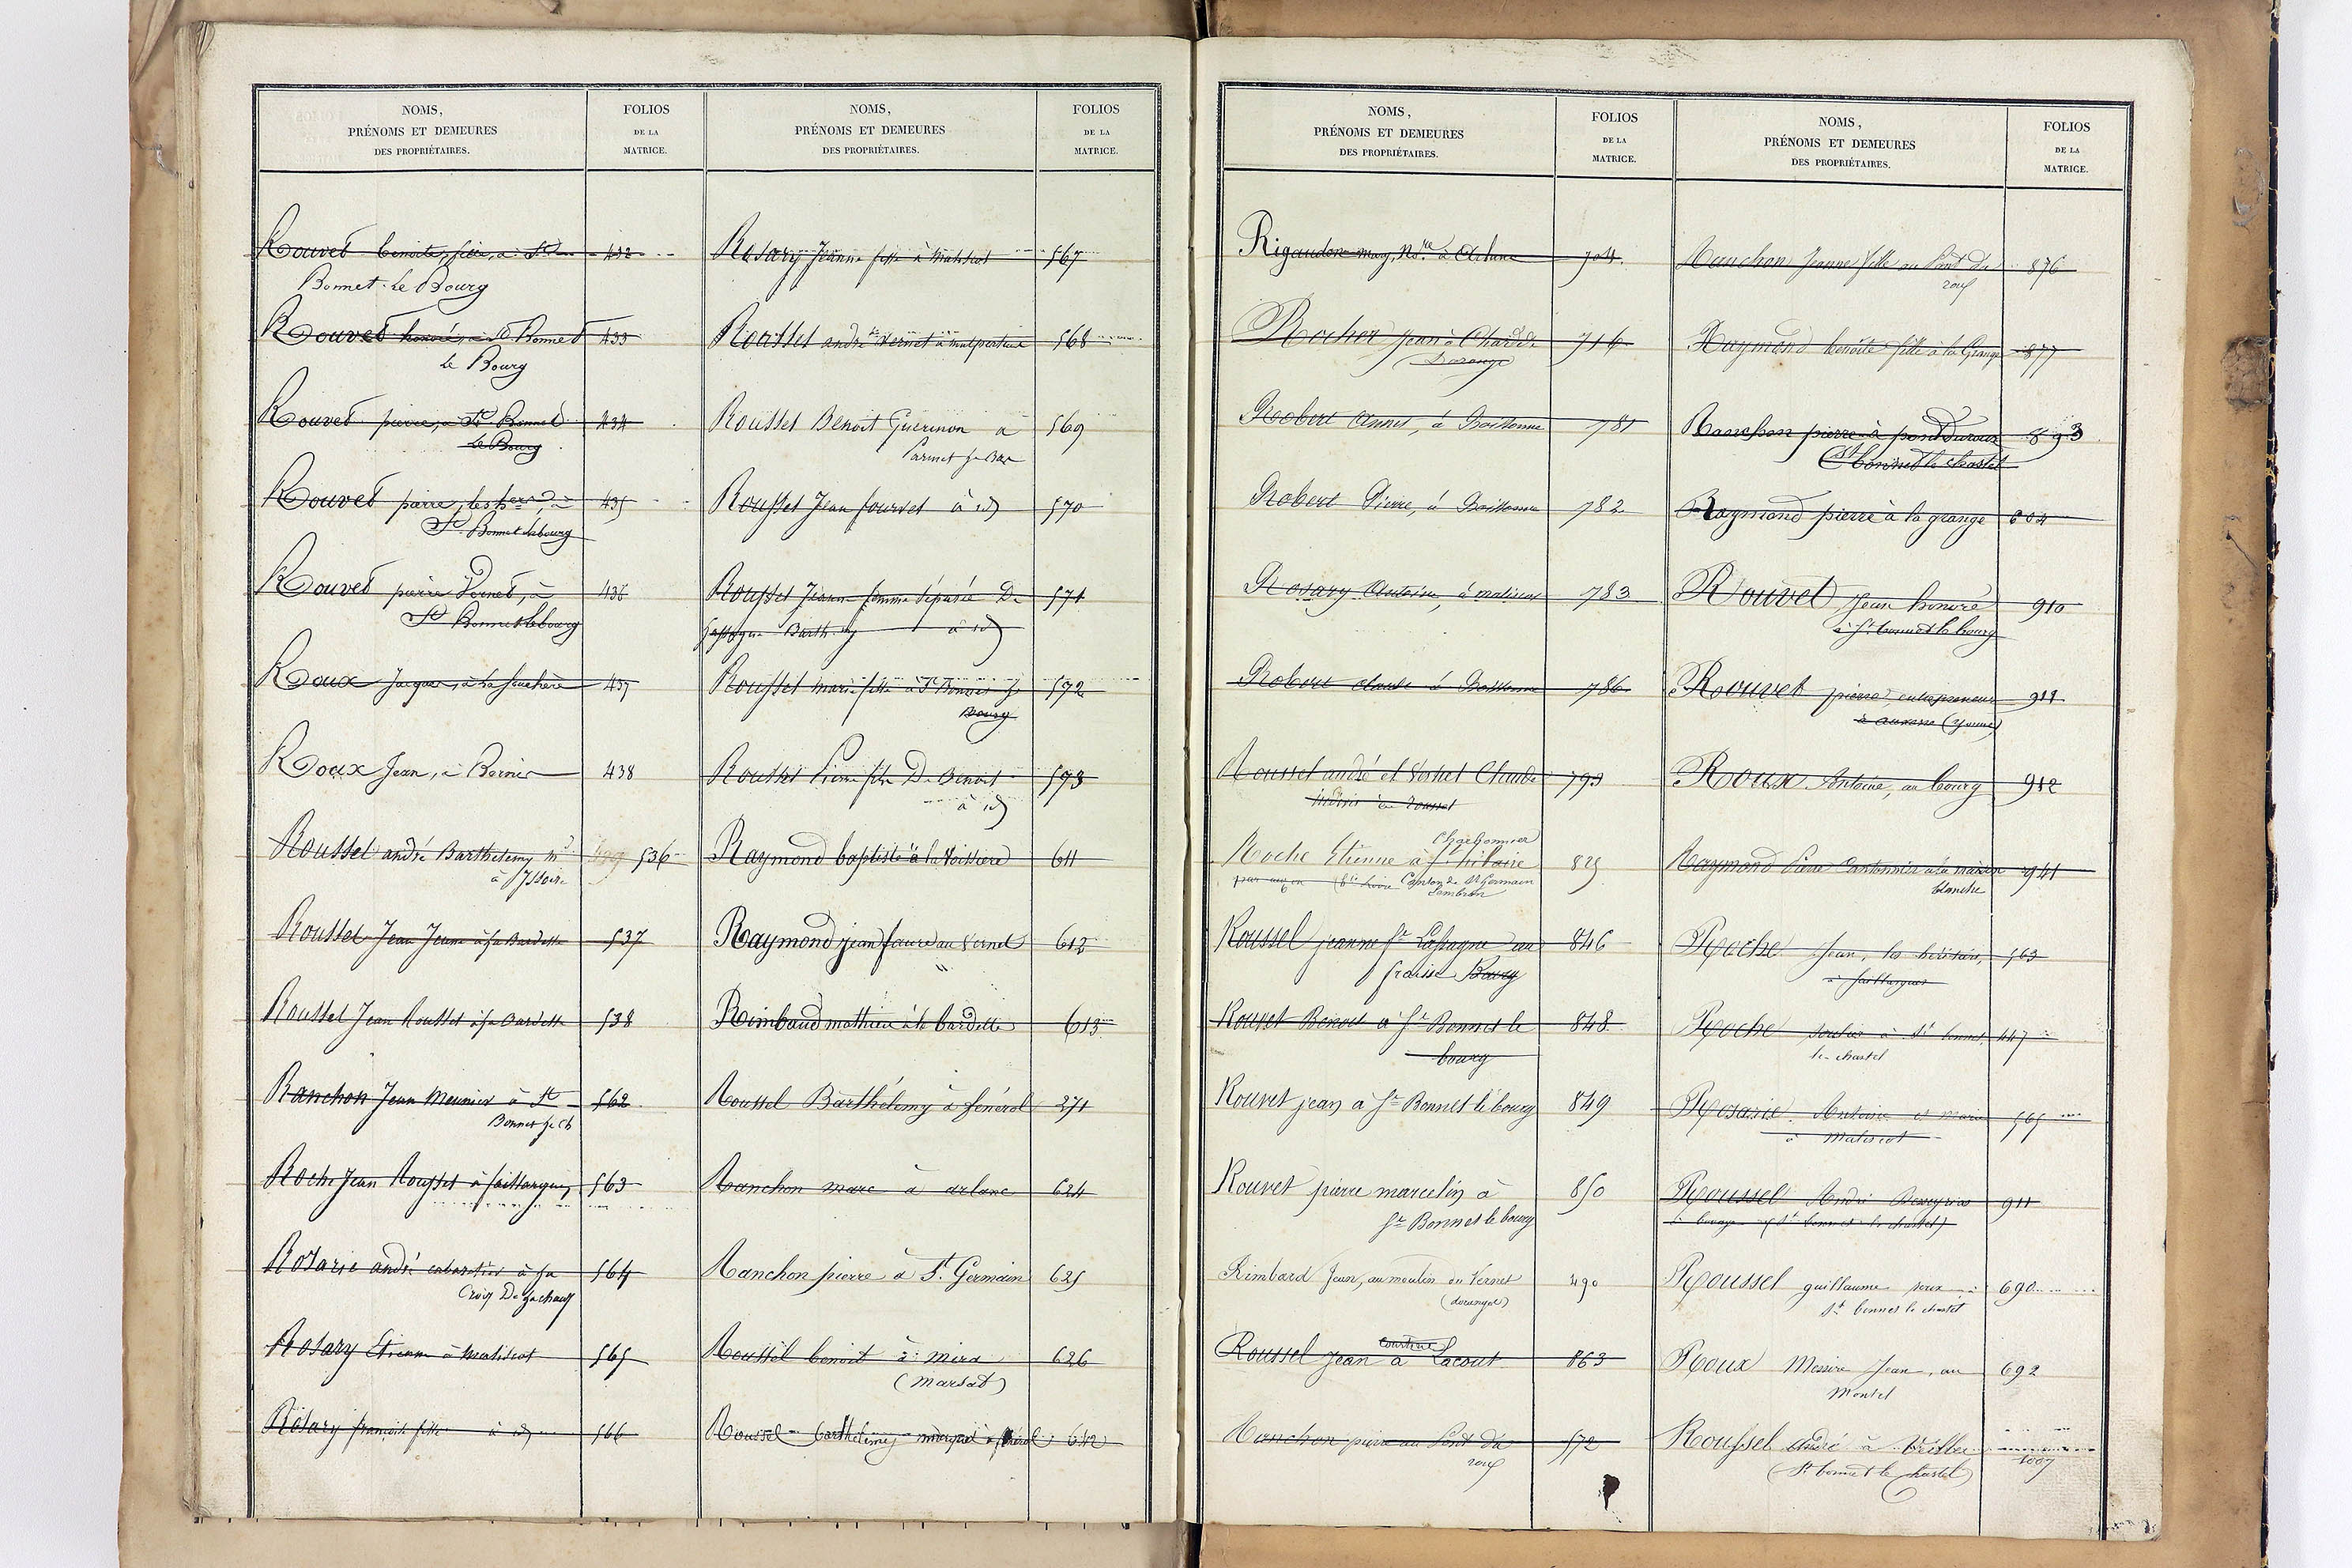 NOMS,
PRÉNOMS ET DEMEURES
DES PROPRIÉTAIRES.
FOLIOS
DE LA
MATRICE.
Rouvet benoite, fière, à St 432
Bonnet-le Bourg
Rouvet honoré, à St Bonnet 433
le Bourg
Rouvet pierre, à St Bonnet 434
le Bourg
Rouvet pierre, les hers, à 435
St Bonnet lebourg
Rouvet pierre Vernet, à 436
St Bonnet lebourg
Roux Jacques, à la fouchère 437
Roux Jean, à Bernis 438
Roussel andré Barthelemy md 536
à Issoire
Roussel Jean Jeune à la Bardette 537
Roussel Jean Roussel à la Bardette 538
Ranchon Jean Meunier à St 562
Bonnet le Ch
Roche Jean Rousset à faillargues 563
Rosarie andré cabaretier à la 564
Croix De lachaux
Rosary Etienne à Matiscot 565
Rosary françois fils à id 566
NOMS,
PRÉNOMS ET DEMEURES
DES PROPRIÉTAIRES.
FOLIOS
DE LA
MATRICE.
Rosary Jeanne fille à Matiscot 567
Rousset andré Vernet à malpertuis 568
Rousset Benoit Guerinon à 569
Parinet le Bas
Rousset Jean fournet à id 570
Rousset Jeanne femme séparée De 571
Barth.my à id
Rousset marie fille à St Bonnet le 572
Bourg
Rousset Pierre fils De Benoit 573
à id
Raymond baptiste à la Voissiere 611
Raymond jean faure au Vernet 612
Rimbaud mathieu à la bardette 613
Roussel Barthélemy à fénérol 371
Ranchon marc à arlanc 624
Ranchon pierre à St. Germain 625
Roussel benoit à mira 626
(Marsat)
Roussel barthélemy à fénérol 642
NOMS,
PRÉNOMS ET DEMEURES
DES PROPRIÉTAIRES.
FOLIOS
DE LA
MATRICE.
Rigaudon may, Nre à Arlanc 704
Rocher Jean à Chard de 716
Doranges
Robert Annet, à Boissonne 781
Robert Pierre, à Boissonne 782
Rosary Antoine, à matiscot 783
Robert claude à Boissonne 786
Roussel andré et Vernet Claude 793
indivis roussel
Charbonnier
Roche Etienne à St hilaire 829
par Canton de St Germain
Lembron
Roussel jeanne fe Laspagne au 846
fraisse Bourg
Rouvet Benoit à St Bonnet le 848
bourg
Rouvet jean à St Bonnet le bourg 849
Rouvet pierre marcelin à 850
St Bonnet le bourg
Rimbard Jean, au moulin du Vernet 490
(doranges)
courtine
Roussel jean à Lacout 863
Ranchon pierre au Pont du 572
roux
NOMS,
PRÉNOMS ET DEMEURES
DES PROPRIÉTAIRES.
FOLIOS
DE LA
MATRICE.
Ranchon Jeanne fille au Pont du 876
roux
Raymond benoite fille à la Grange 877
Ranchon pierre à pont duroux 893
St bonnet le chastel
Raymond pierre à la grange 604
Rouvet Jean honoré 910
à St bonnet le bourg
Rouvet pierre, entrepreneur 911
à auxerre (Yonne)
Roux Antoine, au bourg 912
Raymond Pierre Cantonnier à la maison 941
blanche
Roche Jean, les héritiers, 563
à faillargues
Roche à St bonnet 447
le-chastel
Rosarie Antoine et marie 565
à Matiscot
Roussel André 911
(St bonnet le chastel)
Roussel guillaume 690
St bonnet le chastel
Roux Messire Jean, au 692
Montel
Roussel andré à 1007
(St bonnet le chastel)